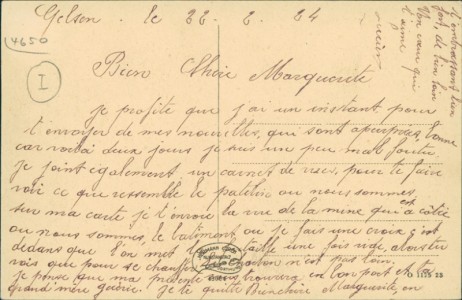 Gelsen. le 22 . 2 . 24
(4650)
I
Bien Chère Marguerite
je profite que j'ai un instant pour
t'envoyer de mes nouvelles, qui sont à peu près bonne
car voilà deux jours je suis une peu mal foutu
je joint egalement un carnet de vues, pour te faire
voir ce que ressemble le patelin ou nous sommes,
sur ma carte je t'envoie la vue de la mine qui est à côtié
ou nous sommes, le batiment, ou je fais une croix, c'est
dedans que l'on met une fois usé, alors tu
vois que pour se chauffer charbon n'est pas loin.
je pense que ma présente te trouvera en bon port et te
grand mère guérie. Je te quitte Bien chère Marguerite, en
t'embrassant bien
fort, de bien loin
Ton cœur qui
t'aime